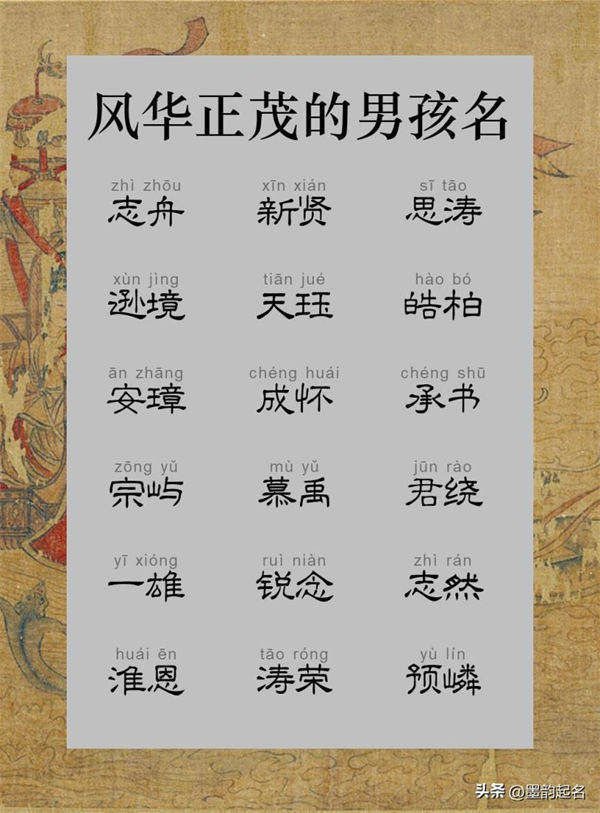 风华正茂的男孩名
zhì zhōu xīn xián sī tāo
志舟 新贤 思涛
xùn jìng tiān jué hào bó
逊境 天珏 皓柏
ān zhāng chéng huái chéng shū
安璋 成怀 承书
zōng yǔ mù yǔ jūn rào
宗屿 慕禹 君绕
yī xióng ruì niàn zhì rán
一雄 锐念 志然
huái ēn tāo róng yù lín
淮恩 涛荣 预嶙
头条 @墨韵起名